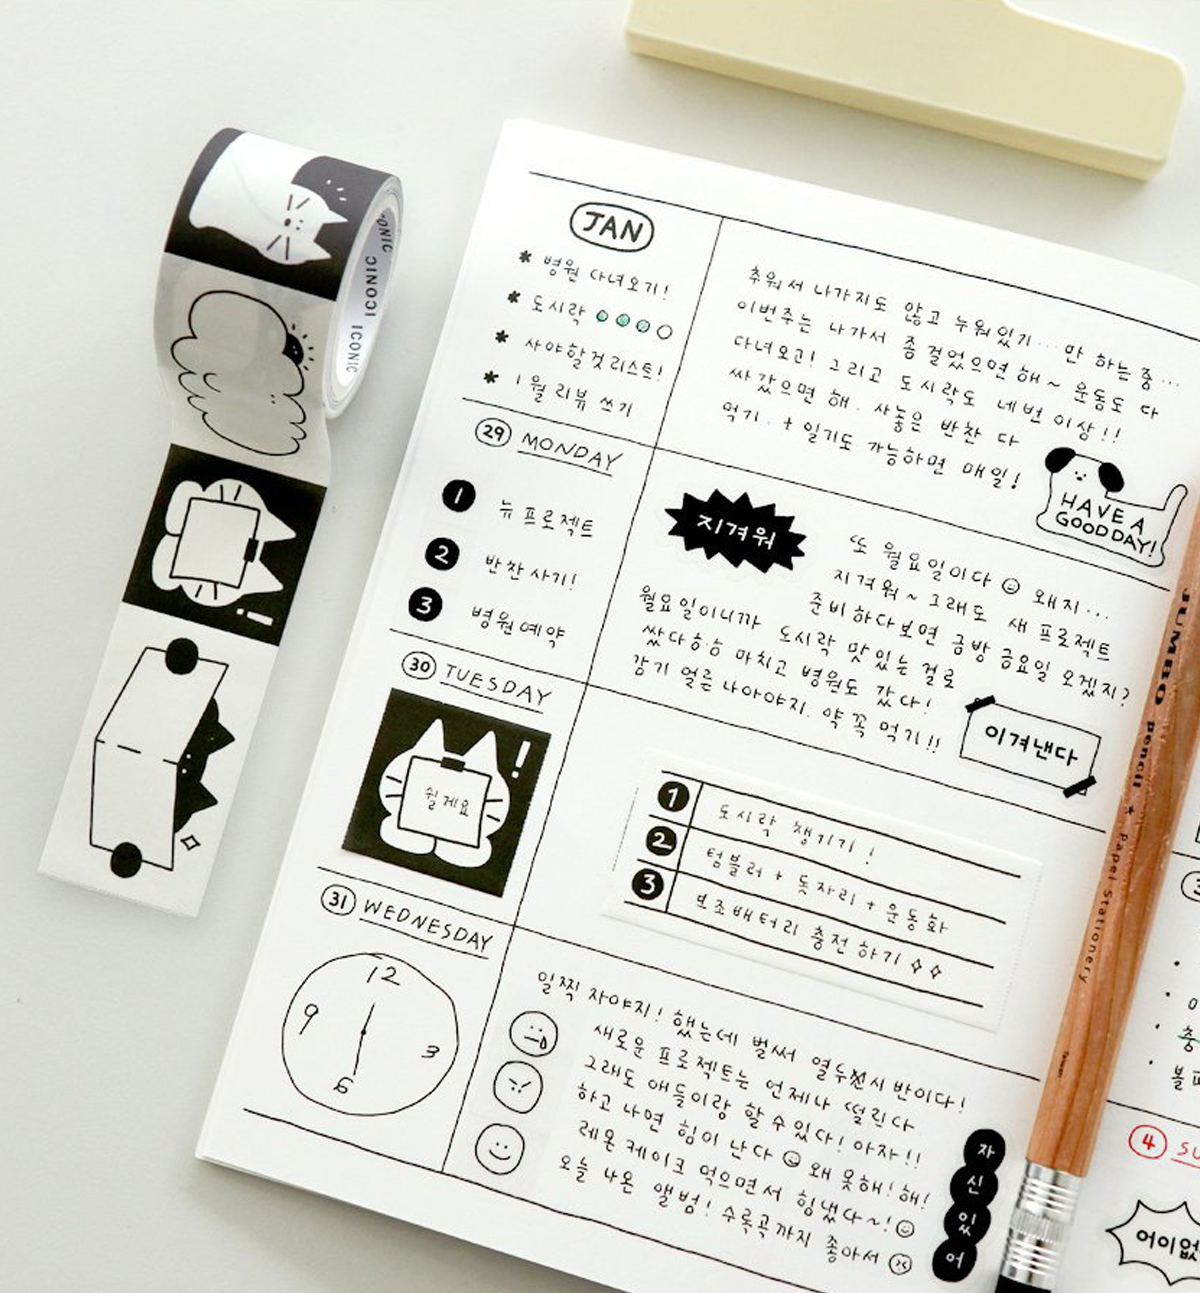 ICONIC ICONIC
JAN
* 병원 다녀오기!
* 도시락
* 사야할것리스트!
* 1월 리뷰 쓰기
추워서 나가지도 않고 누워있기... 만 하는중...
이번주는 나가서 좀 걸었으면 해~ 운동도 다
다녀오고! 그리고 도시락도 네번 이상!!
싸갔으면 해. 사놓은 반찬 다
먹기. + 일기도 가능하면 매일!
HAVE A
GOOD DAY!
29 MONDAY
1 뉴 프로젝트
2 반찬사기!
3 병원예약
지겨워
또 월요일이다 왜지...
지겨워~ 그래도 새 프로젝트
준비하다보면 금방 금요일 오겠지?
월요일이니까 도시락 맛있는 걸로
쌌다ㅎㅎ 마치고 병원도 갔다!
감기 얼른 나아야지. 약 꼭 먹기!!
이겨낸다
30 TUESDAY
!
쉴게요
1 도시락 챙기기!
2 텀블러 + 돗자리 + 운동화
3 보조배터리 충전하기
31 WEDNESDAY
12
9
3
6
일찍 자야지! 했는데 벌써 열두시 반이다!
새로운 프로젝트는 언제나 떨린다.
그래도 애들이랑 할 수 있다! 아자!!
하고 나면 힘이 난다 왜 못해! 해!
레몬 케이크 먹으면서 힘냈다~!
오늘 나온 앨범! 수록곡까지 좋아서
자
신
있
어
JUMBO pencil * Papel Stationery
4 SU
어이없